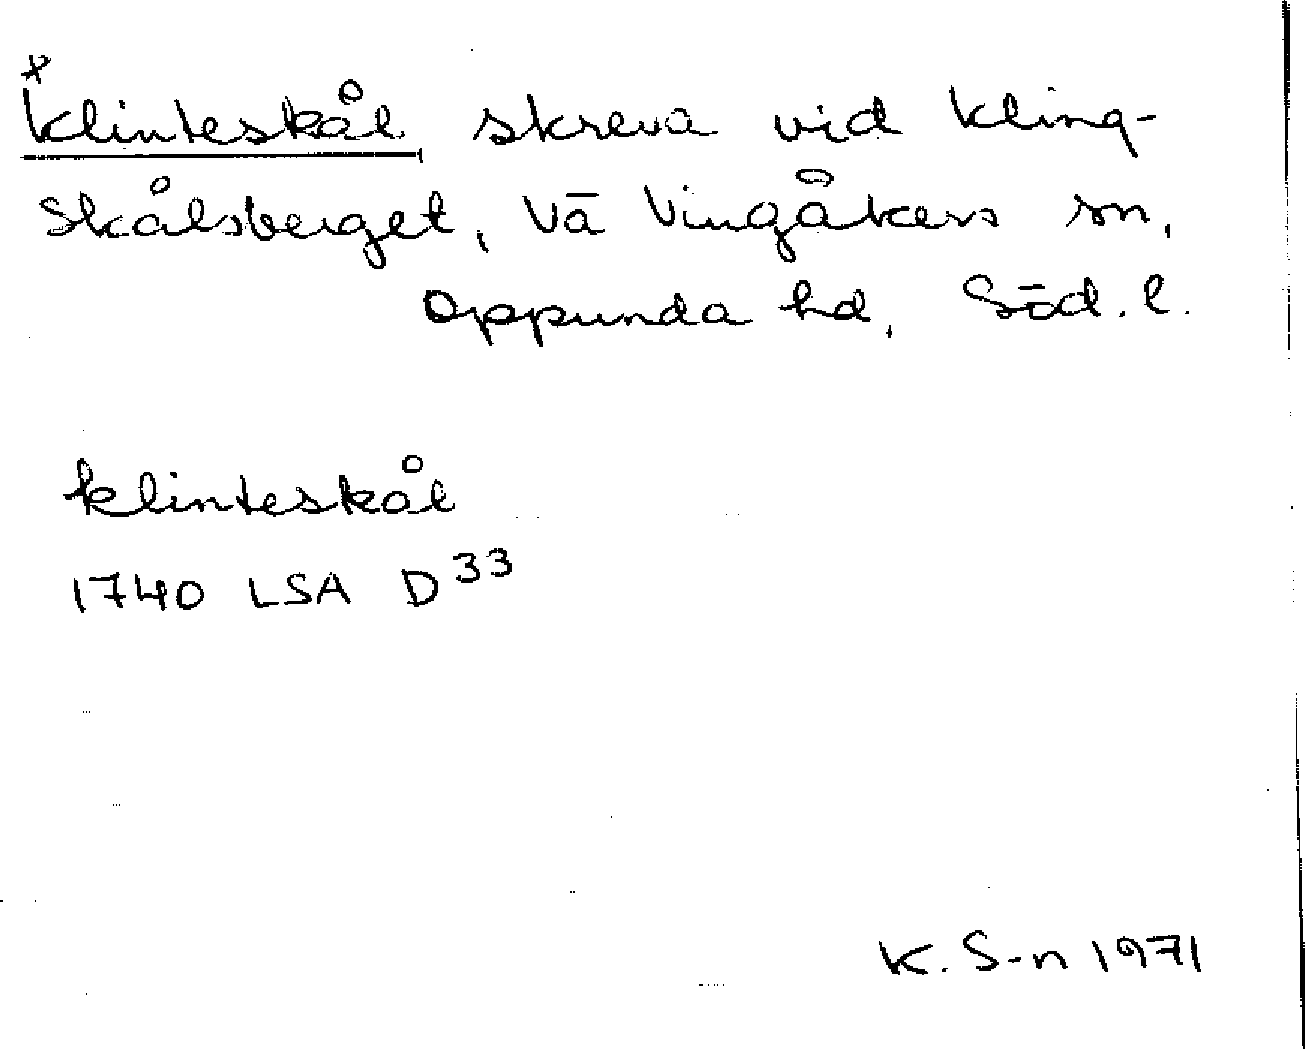 x
Klinteskål skreva vid Kling-
skålsberget, Vä Vingåkers sn,
Oppunda hd, Söd. l.
klinteskål
1740 LSA D 33
K. S-n 1971